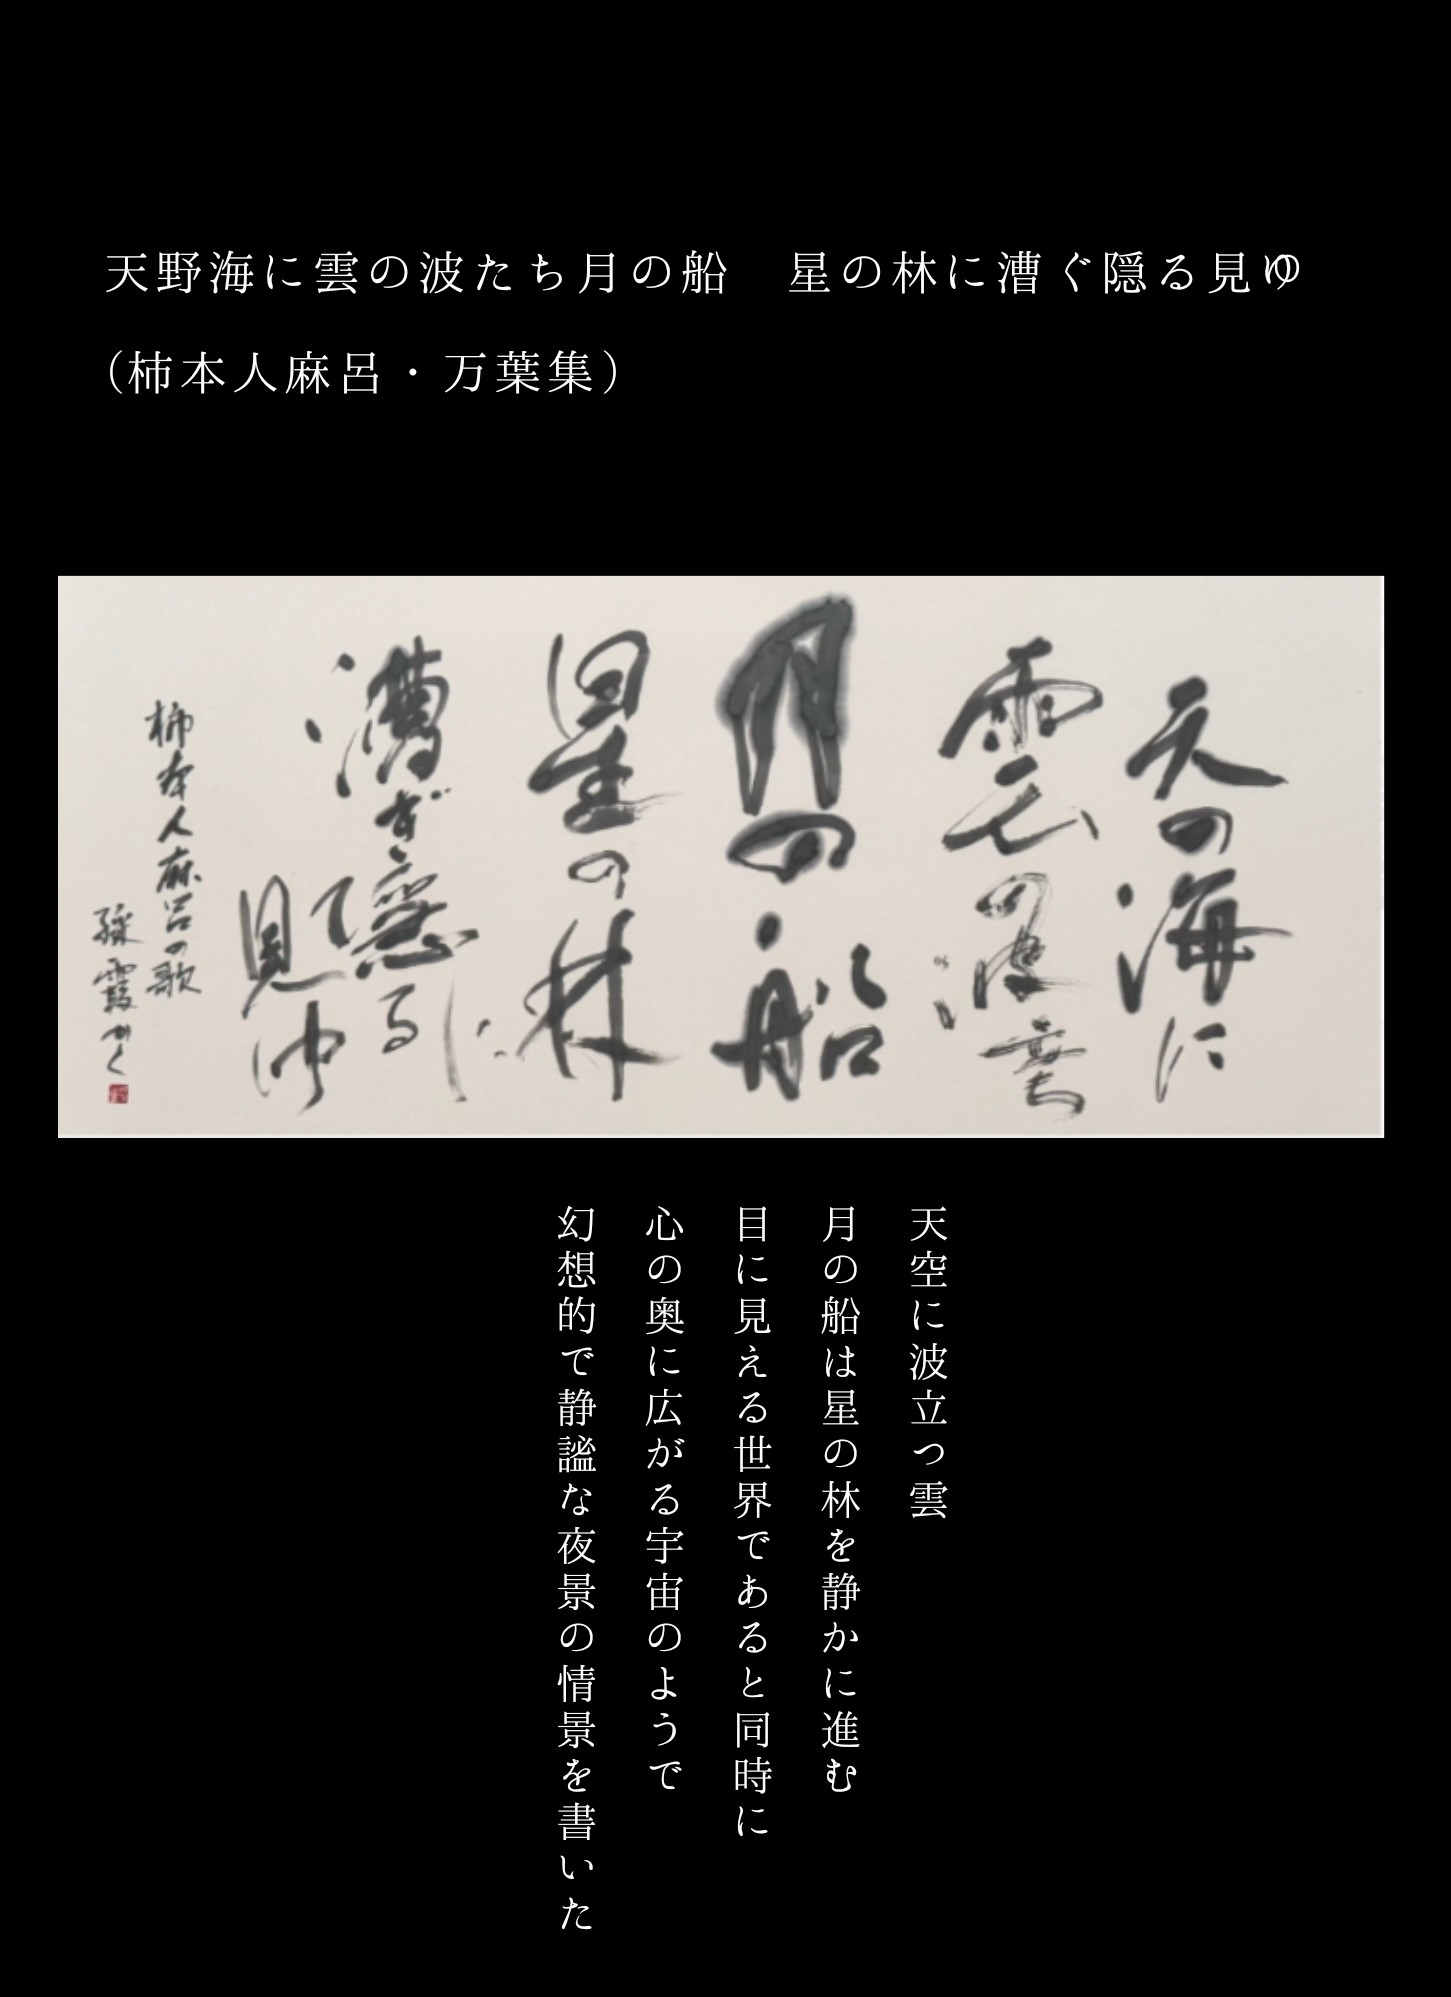 天野海に雲の波たち月の船　星の林に漕ぐ隠る見ゆ
（柿本人麻呂・万葉集）
天の海に
雲の波立ち
月の船
星の林に
漕ぎ隠る
見ゆ
柿本人麻呂の歌
霞かく
天空に波立つ雲
月の船は星の林を静かに進む
目に見える世界であると同時に
心の奥に広がる宇宙のようで
幻想的で静謐な夜景の情景を書いた